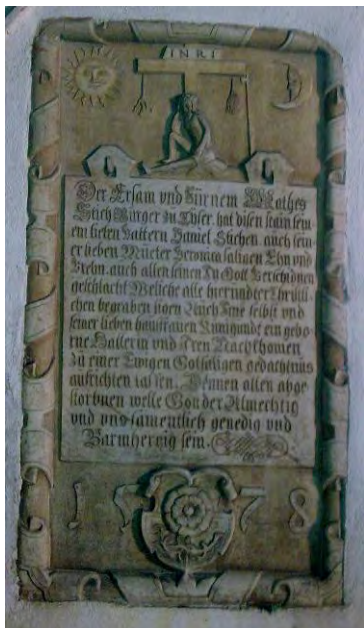 INRI
Der Ersam und Fürnem Mathes
Stich Bürger zu Tyser, hat disen stain sein
em lieben Vattern Daniel Stichen, auch sein
er lieben Mueter Veronica saligen Ehn und
auch allen seinen In Gott
geschlacht Weliche alle hierundter Christli
chen begraben ligen Auch Ime selbst und
seiner lieben hausfrauen Kunigundt ein gebo
rne Hallerin und Iren Nachkhomen
zu einer Ewigen Gotsaligen gedachtnus
aufrichten lassen. Dennen allen abge
storbnen welle Gott der Almechtig
und uns samentlich genedig und
Barmhertzig sein.
1578